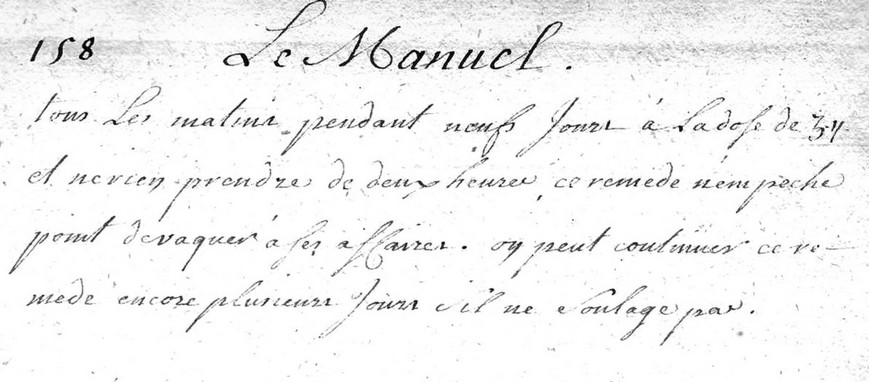 158 Le Manuel.
tous Les matins pendant neufs Jours à La dose de ʒij
et ne rien prendre de deux heures, ce remede n'empeche
point de vaquer à ses affaires. on peut continuer ce re-
mede encore plusieurs Jours s'il ne soulage pas.